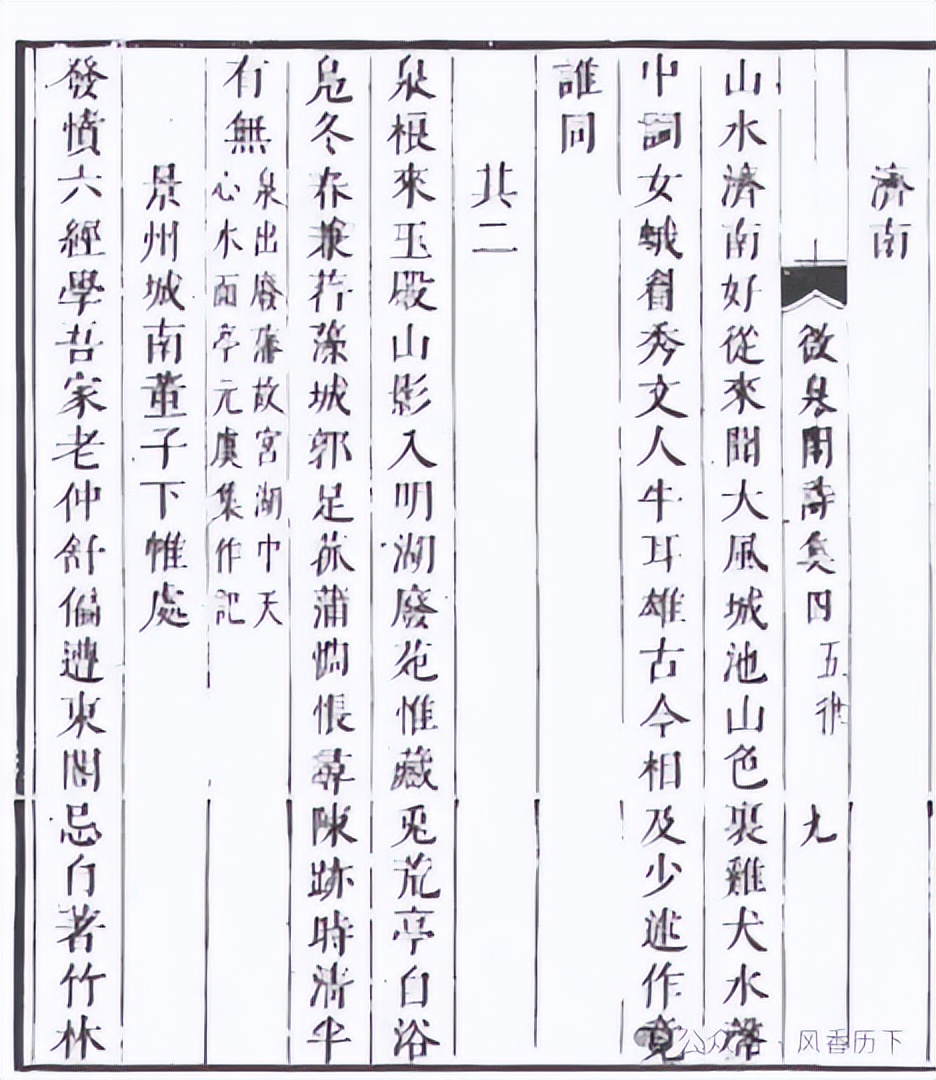 濟南
微泉閣詩集四 五律 九
山水濟南好從來聞大風城池山色裏雞犬水聲
中詞女蛾眉秀文人牛耳雄古今相及少述作竟
誰同
其二
泉根來玉殿山影入明湖廢苑惟藏兎荒亭自浴
鳧冬春兼荇藻城郭足菰蒲惆悵尋陳跡時清半
有無
泉出廢藩故宮湖中天
心水面亭元虞集作記
景州城南董子下帷處
發憤六經學吾家老仲舒偏遭東閣忌自著竹林
公众 · 风香历下